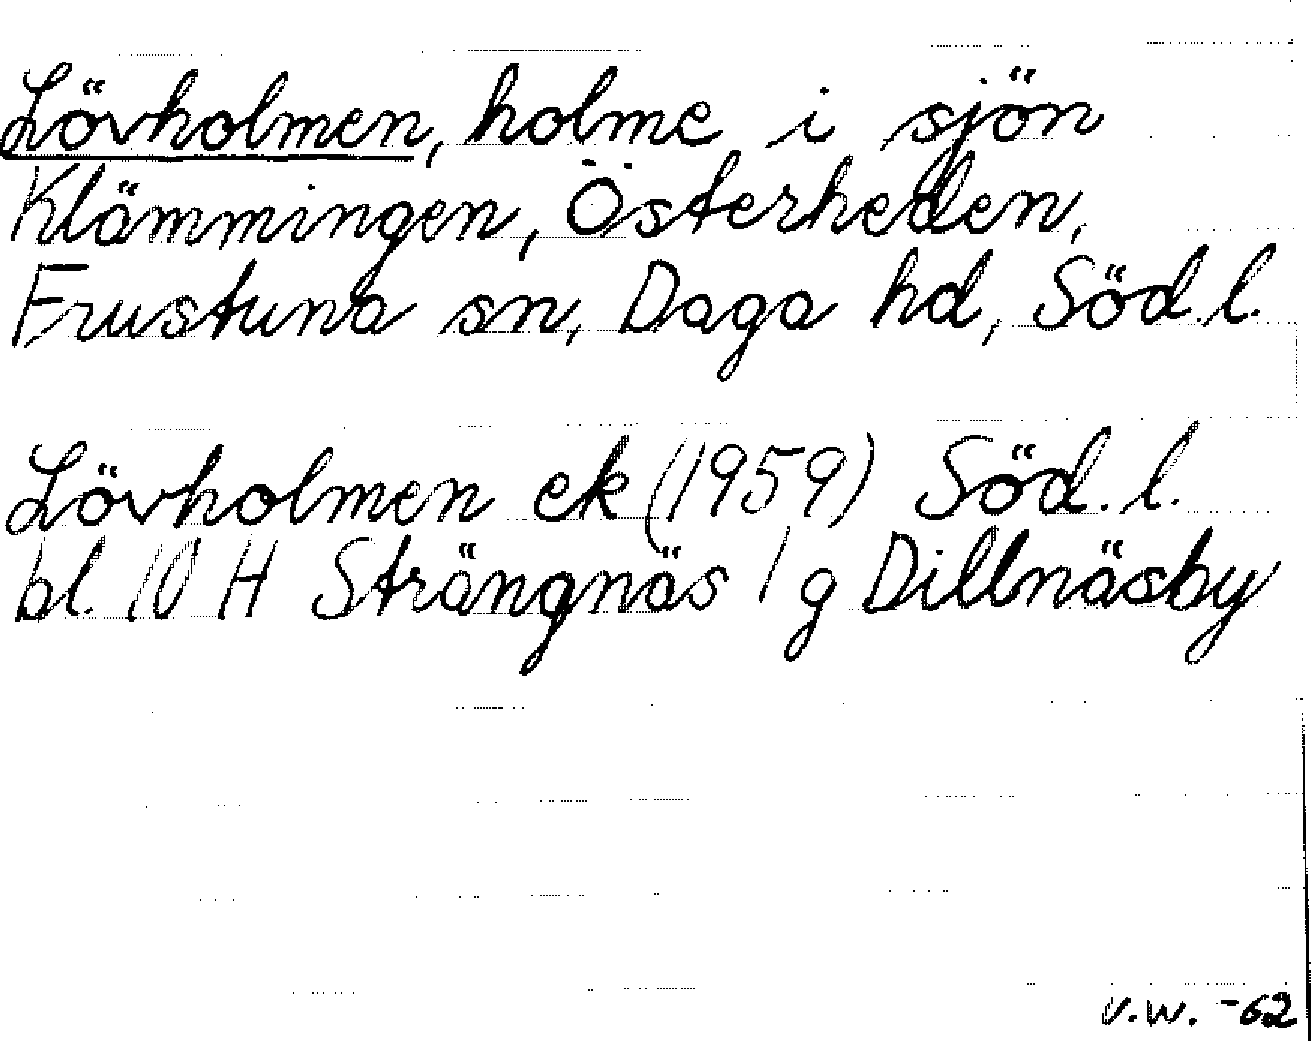 Lövholmen, holme i sjön
Klämmingen, Österheden,
Frustuna sn, Daga hd, Söd. l.
Lövholmen ek (1959) Söd. l.
bl. 10 H Strängnäs 1 g Dillnäsby
V.W. -62